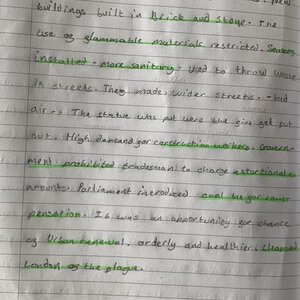 New
buildings built in Brick and stone. The
use og glammable materials restricted. Sewers
installed - more sanitary. Used to throw waste
in streets. They made wider streets. - bad
air. The statue was put were the gire got put
out. High demand gor construction workers. Govern-
ment prohibited tradesman to charge extortionate
amounts. Parliament introduced coal tax gor com-
pensation. It was an opportunity gor change
og Urban renewal. orderly and healthier. Cleansed
London og the plague.